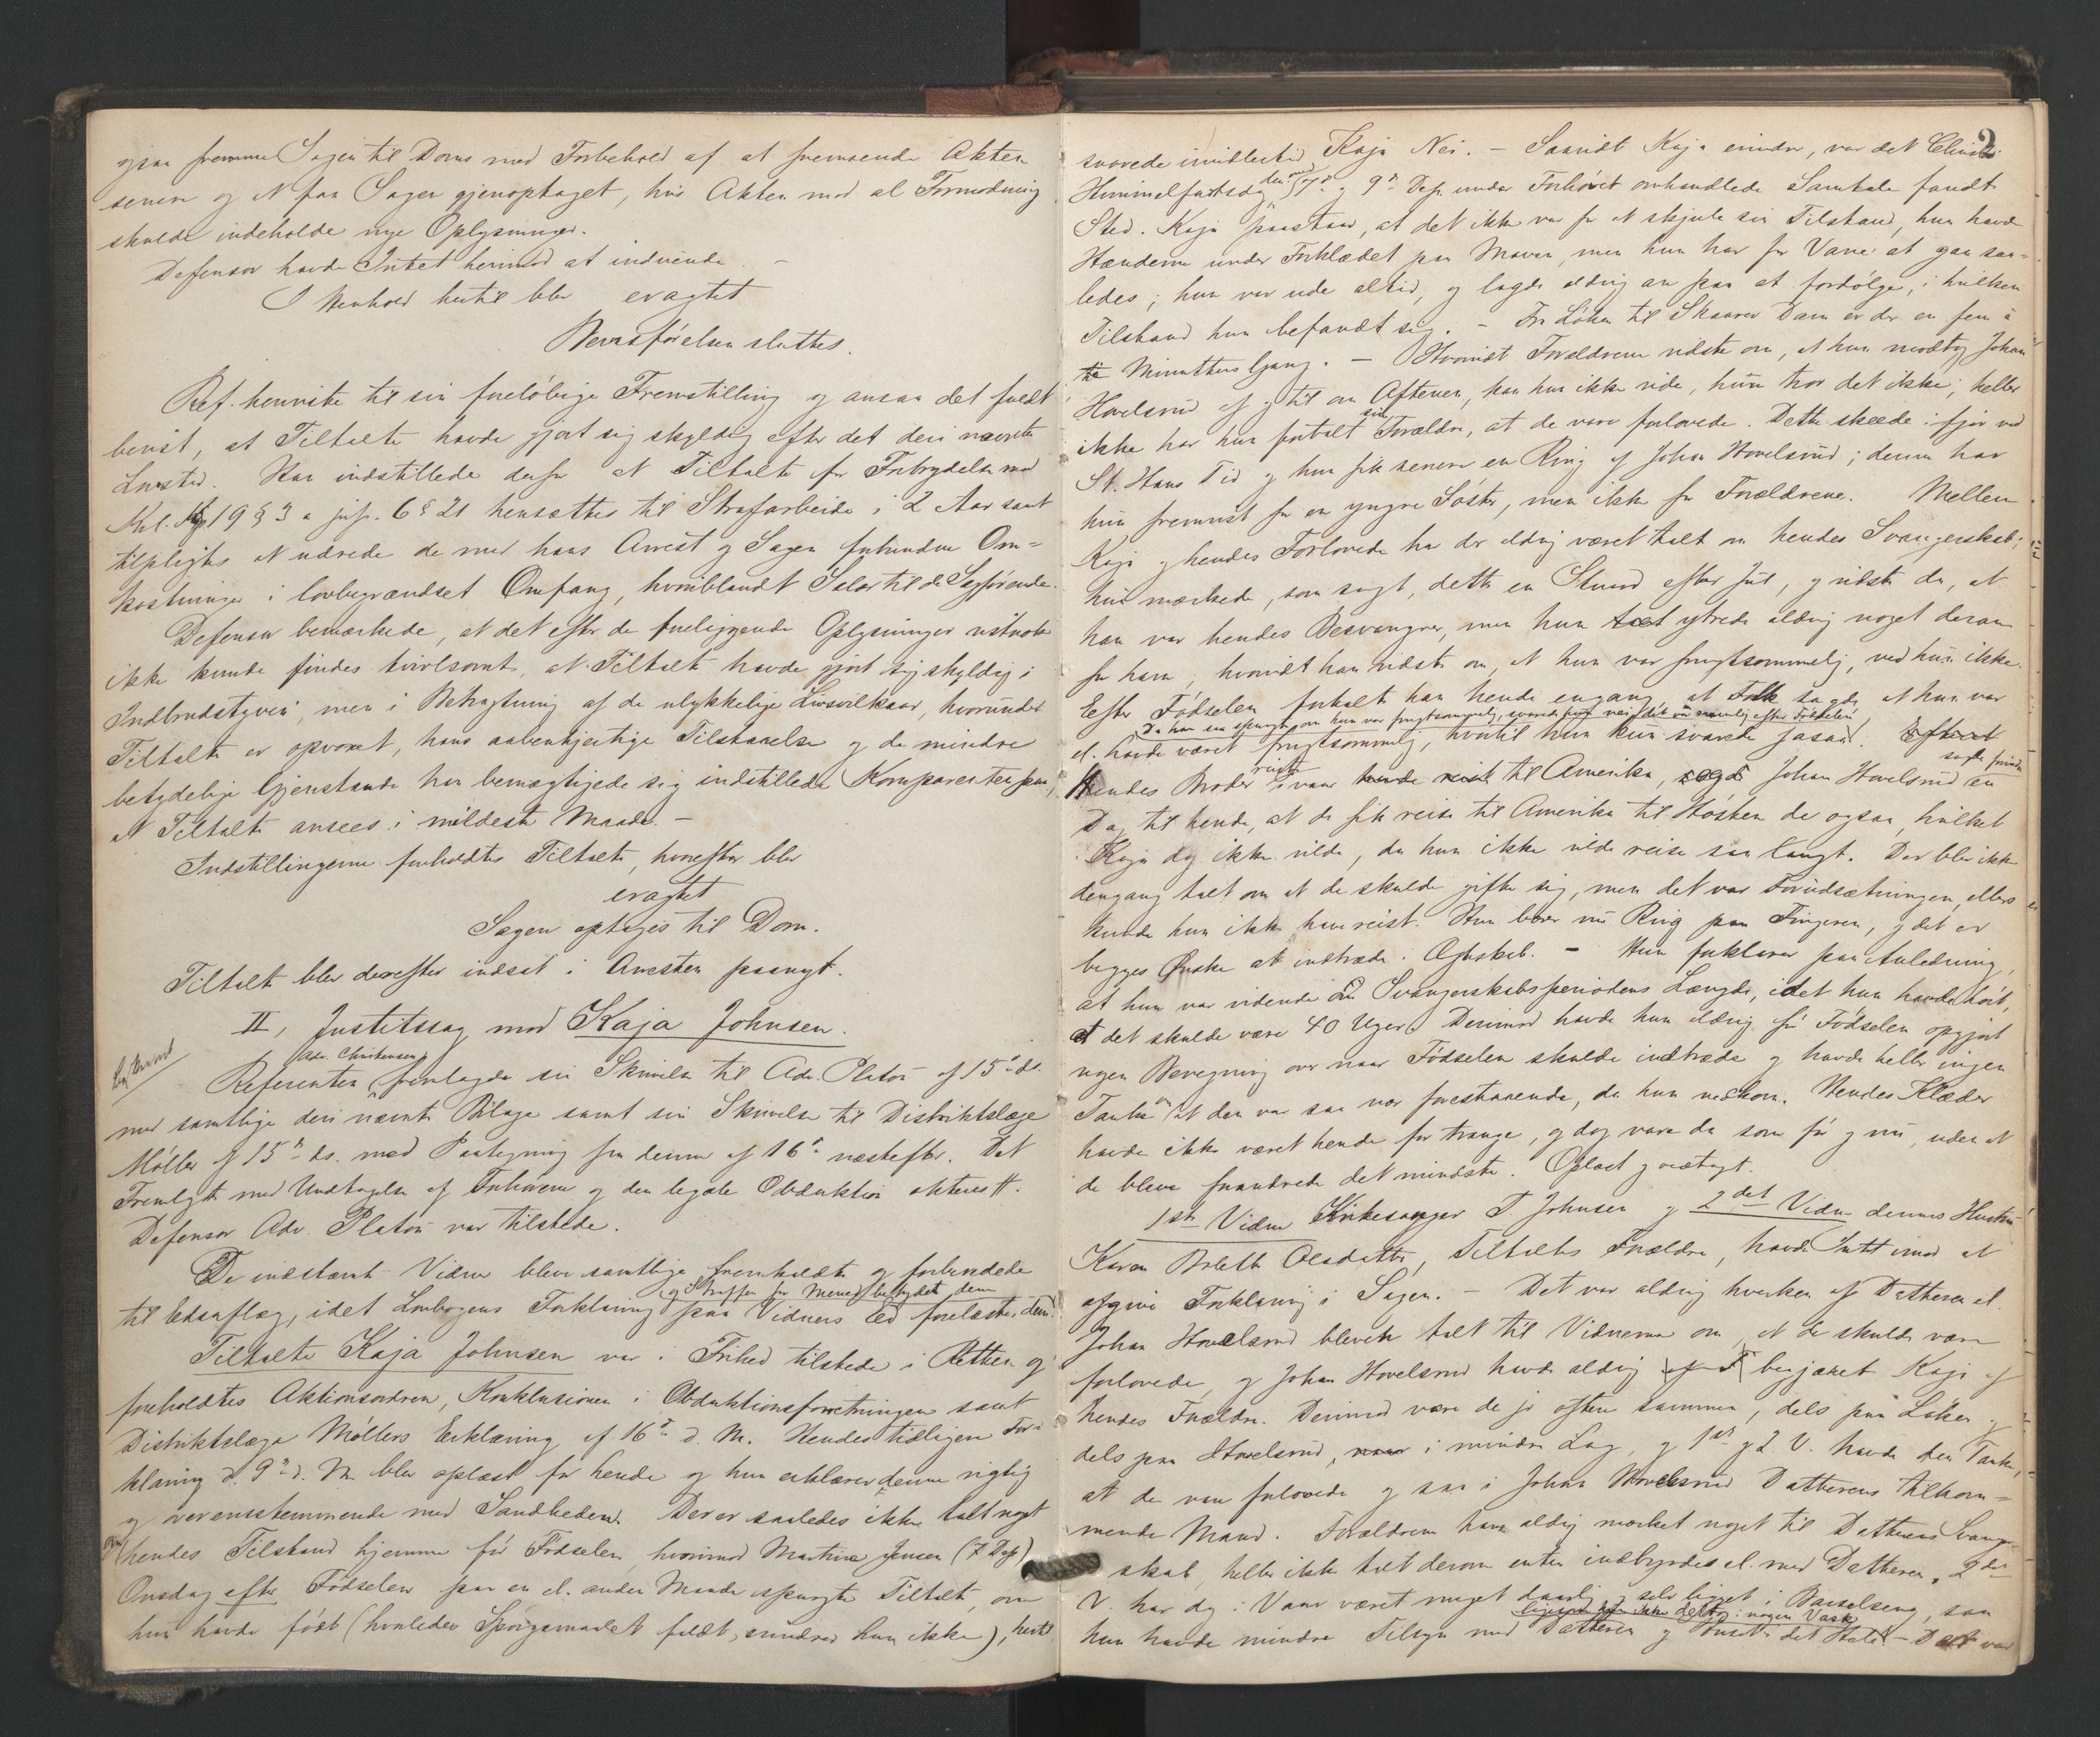 ogsaa fremme Sagen til Doms med Forbehold af at fremsende Akten
senere og at faa Sagen gjenoptaget, hvis Akten mod al Formodning
skulde indeholde nye Oplysninger.
Defensor havde Intet herimod at indvende. –
I Henhold hertil blev eragtet
Bevisførelsen sluttes.
Ref. henviste til sin foreløbige Fremstilling og ansaa det fuldt
bevist, at Tiltalte havde gjort sig skyldig efter det deri nævnte
Lovsted. Han indstillede derfor at Tiltalte for Forbrydelse mod
Krl. Kap 19 § 3 a jvfr. 6 § 21 hensættes til Strafarbeide i 2 Aar samt
tilpligtes at udrede de med hans Arrest og Sagen forbundne Om-
kostninger i lovbegrændset Omfang, hvoriblandt Salær til de Sagførende.
Defensor bemærkede, at det efter de foreliggende Oplysninger vistnok
ikke kunde findes tvivlsomt, at Tiltalte havde gjort sig skyldig i
Indbrudstyveri, men i Betragtning af de ulykkelige Livsvilkaar, hvorunder
Tiltalte er opvoxet, hans aabenhjertige Tilstaaelse og de mindre
betydelige Gjenstande han bemægtigede sig indstillede Komparenten paa,
at Tiltalte ansees i mildeste Maade. –
Indstillingerne foreholdtes Tiltalte, hvorefter blev
eragtet
Sagen optages til Dom.
Tiltalte blev derefter indsat i Arresten paanyt.
II, Justitssag mod Kaja Johnsen.
Adv. Christensen
Referenten fremlagde sin Skrivelse til Adv. Platou af 15de ds.
med samtlige deri nævnte Bilage samt sin Skrivelse til Distriktslæge
Møller af 15de ds. med Paategning fra denne af 16de næstefter. Det
Fremlagte med Undtagelse af Forhørene og den legale Obduktion akteres #.
Defensor Adv. Platou var tilstede.
De indstævnte Vidner bleve samtlige fremkaldte og forberedede
og Straffen for Mened betydet dem
til Edsaflæg, idet Lovbogens Forklaring paa Vidners Ed forelæstes dem.
Tiltalte Kaja Johnsen var i Frihed tilstede i Retten og
foreholdtes Aktionsordren, Konklusionen i Obduktionsforretningen samt
Distriktslæge Møllers Erklæring af 16de d. M. Hendes tidligere For-
klaring d. 9de d. M. blev oplæst for hende og hun erklærer denne rigtig
og overensstemmende med Sandheden. Der er saaledes ikke talt noget
om hendes Tilstand hjemme før Fødselen, hvorimod Martine Jensen (7 Dep)
Onsdag efter Fødselen paa en el. anden Maade spurgte Tiltalte, om
hun havde født (hvorledes Spørgsmaalet faldt, erindrer hun ikke), hertil
2
svarede imidlertid Kaja Nei. – Saavidt Kaja erindrer, var det Christi
Himmelfartsdag, den om 7de og 9de Dep. under Forhøret omhandlede Samtale fandt
Sted. Kaja paastaar, at det ikke var for at skjule sin Tilstand, hun havde
Hænderne under Forklædet paa Maven, men hun har for Vane at gaa saa-
ledes; hun var ude altid, og lagde aldrig an paa at fordølge, i hvilken
Tilstand hun befandt sig. – Fra Løken til Skaarer Dam er der en fem à
ti Minutters Gang. – Hvorvidt Forældrene vidste om, at hun modtog Johan
Hovelsrud af og til om Aftenen, kan hun ikke vide, hun tror det ikke; heller
ikke har hun fortalt sine Forældre, at de vare forlovede. Dette skeede ifjor ved
St. Hans Tid og hun fik senere en Ring af Johan Hovelsrud; denne har
hun fremvist for en yngre Søster, men ikke for Forældrene. Mellem
Kaja og hendes Forlovede har der aldrig været talt om hendes Svangerskab;
hun mærkede, som sagt, dette en Stund efter Jul, og vidste da, at
han var hendes Besvangrer, men hun talt ytrede aldrig noget derom
for ham; hvorvidt han vidste om, at hun var frugtsommelig, ved hun ikke.
Efter Fødselen fortalte han hende engang, at Folk sagde, at hun var
Da han saa spurgte, om hun var frugtsommelig, svarede hun nei, det var nemlig efter Fødselen
el. havde været frugtsommelig, hvortil hun kun svarede jasaa.
Hendes Broder reiste ivaar havde reist til Amerika, sagde Johan Hovelsrud en
Dag til hende, at de fik reise til Amerika til Høsten de ogsaa, hvilket
Kaja dog ikke vilde, da hun ikke vilde reise saa langt. Der blev ikke
dengang talt om at de skulde gifte sig, men det var Forudsætningen, ellers
kunde hun ikke have reist. Hun bærer nu Ring paa Fingeren, og det er
begges Ønske at indtræde i Ægteskab. – Hun forklarer paa Anledning,
at hun var vidende om Svangerskabsperiodens Længde, idet hun havde hørt,
at det skulde være 40 Uger. Derimod havde hun aldrig før Fødselen opgjort
nogen Beregning over naar Fødselen skulde indtræde og havde heller ingen
Tanke om at den var saa nær forestaaende, da hun nedkom. Hendes Klæder
havde ikke været hende for trange, og dog vare de som før og nu, uden at
de bleve forandrede det mindste. Oplæst og vedtaget.
1ste Vidne Kirkesanger T. Johnsen og 2det Vidne dennes Hustru
Karen Birgitte Olesdatter, Tiltaltes Forældre, havde Intet imod at
afgive Forklaring i Sagen. – Det var aldrig hverken af Datteren el.
Johan Hovelsrud blevet talt til Vidnerne om, at de skulde være
forlovede, og Johan Hovelsrud havde aldrig begjæret Kaja af
hendes Forældre. Derimod vare de jo oftere sammen, dels paa Løken og
dels paa Hovelsrud, i mindre Lag, og 1ste og 2. V. havde den Tanke,
at de vare forlovede og saa i Johan Hovelsrud Datterens tilkom-
mende Mand. Forældrene have aldrig mærket noget til Datterens Svanger-
skab, heller ikke talt derom enten indbyrdes el. med Datteren. 2det
V. har dog i Vaar været meget daarlig og selv ligget i Barselseng, saa
ligesom hun ikke deltog i nogen Vask
hun havde mindre Tilsyn med Datteren og Huset det Hele. – Det var